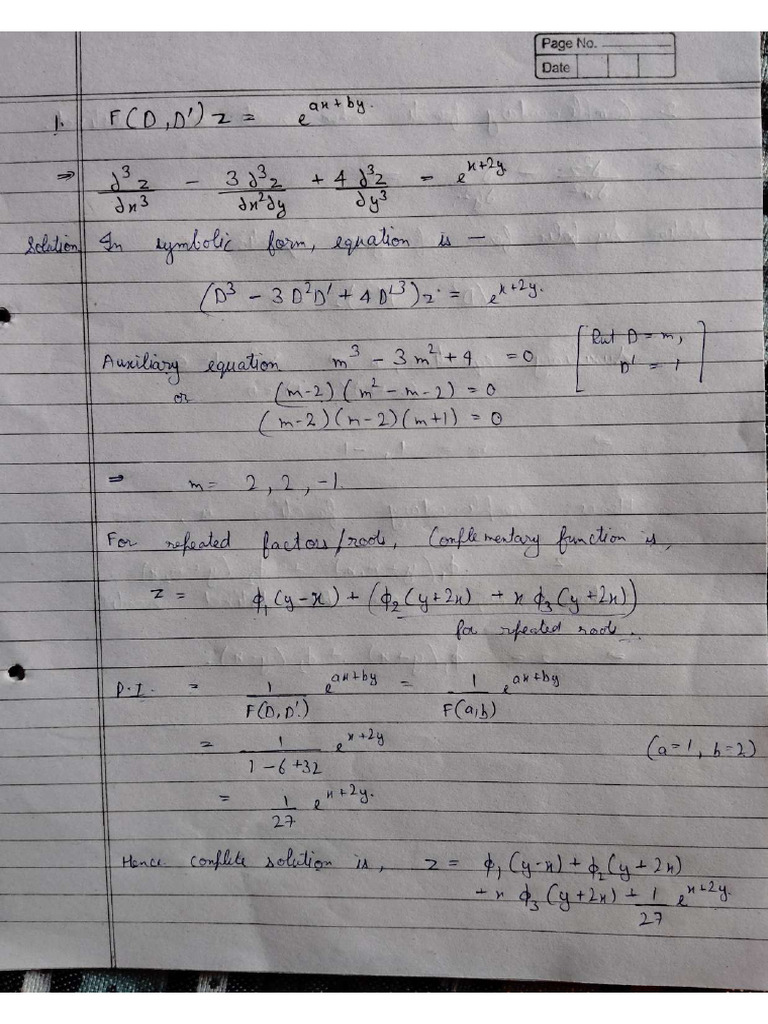 Page No.
Date
1. F(D, D') z = e^{ax+by}.
⇒ ∂³z/∂x³ - 3∂³z/∂x²∂y + 4∂³z/∂y³ = e^{x+2y}
Solution In symbolic form, equation is -
(D³ - 3D²D' + 4D'³)z = e^{x+2y}.
Auxiliary equation m³ - 3m² + 4 = 0 [Put D = m,
D' = 1]
or (m-2)(m² - m - 2) = 0
(m-2)(m-2)(m+1) = 0
⇒ m = 2, 2, -1.
For repeated factors/roots, Complementary function is,
z = ϕ₁(y-x) + (ϕ₂(y+2x) + x ϕ₃(y+2x))
for repeated roots.
P.I. = 1/F(D, D') e^{ax+by} = 1/F(a,b) e^{ax+by}
= 1/(1-6+32) e^{x+2y} (a=1, b=2)
= 1/27 e^{x+2y}.
Hence complete solution is, z = ϕ₁(y-x) + ϕ₂(y+2x)
+ x ϕ₃(y+2x) + 1/27 e^{x+2y}.